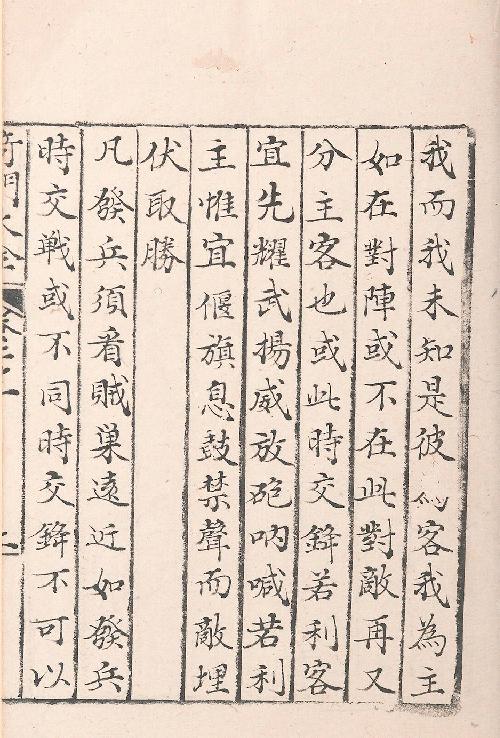 我而我未知是彼為客我為主
如在對陣或不在此對敵再又
分主客也或此時交鋒若利客
宜先耀武揚威放砲吶喊若利
主惟宜偃旗息鼓禁聲而敵埋
伏取勝
凡發兵須看賊巢遠近如發兵
時交戦或不同時交鋒不可以
奇門大全